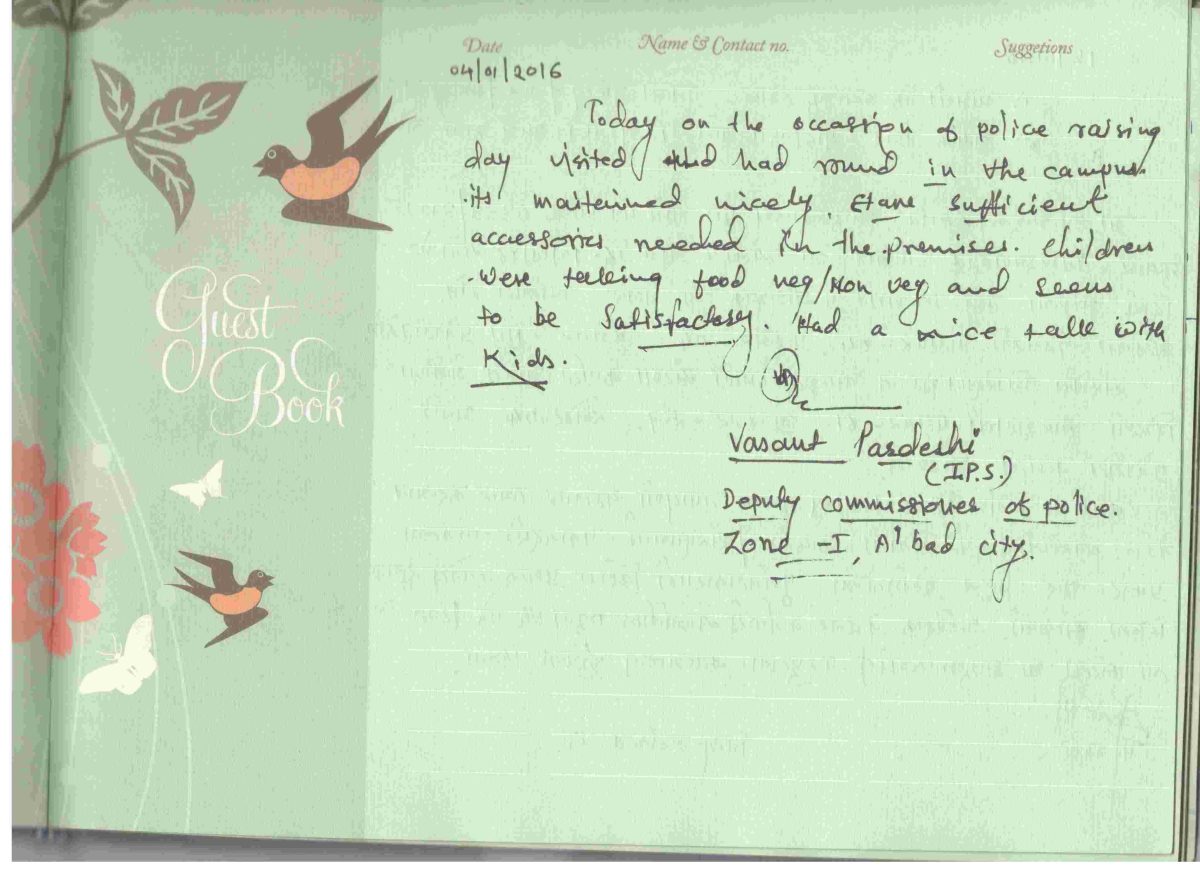 Date Name & Contact no. Suggetions
04/01/2016
Today on the occassion of police raising
day visited had round in the campus.
its maitained nicely. sufficient
accessories needed in the premises. Children
were food veg/Non veg and seems
to be Satisfactory. Had a nice talk with
Kids.
Guest
Book
Vasant Pardeshi
(I.P.S.)
Deputy commissioner of police.
Zone -I, A'bad city.